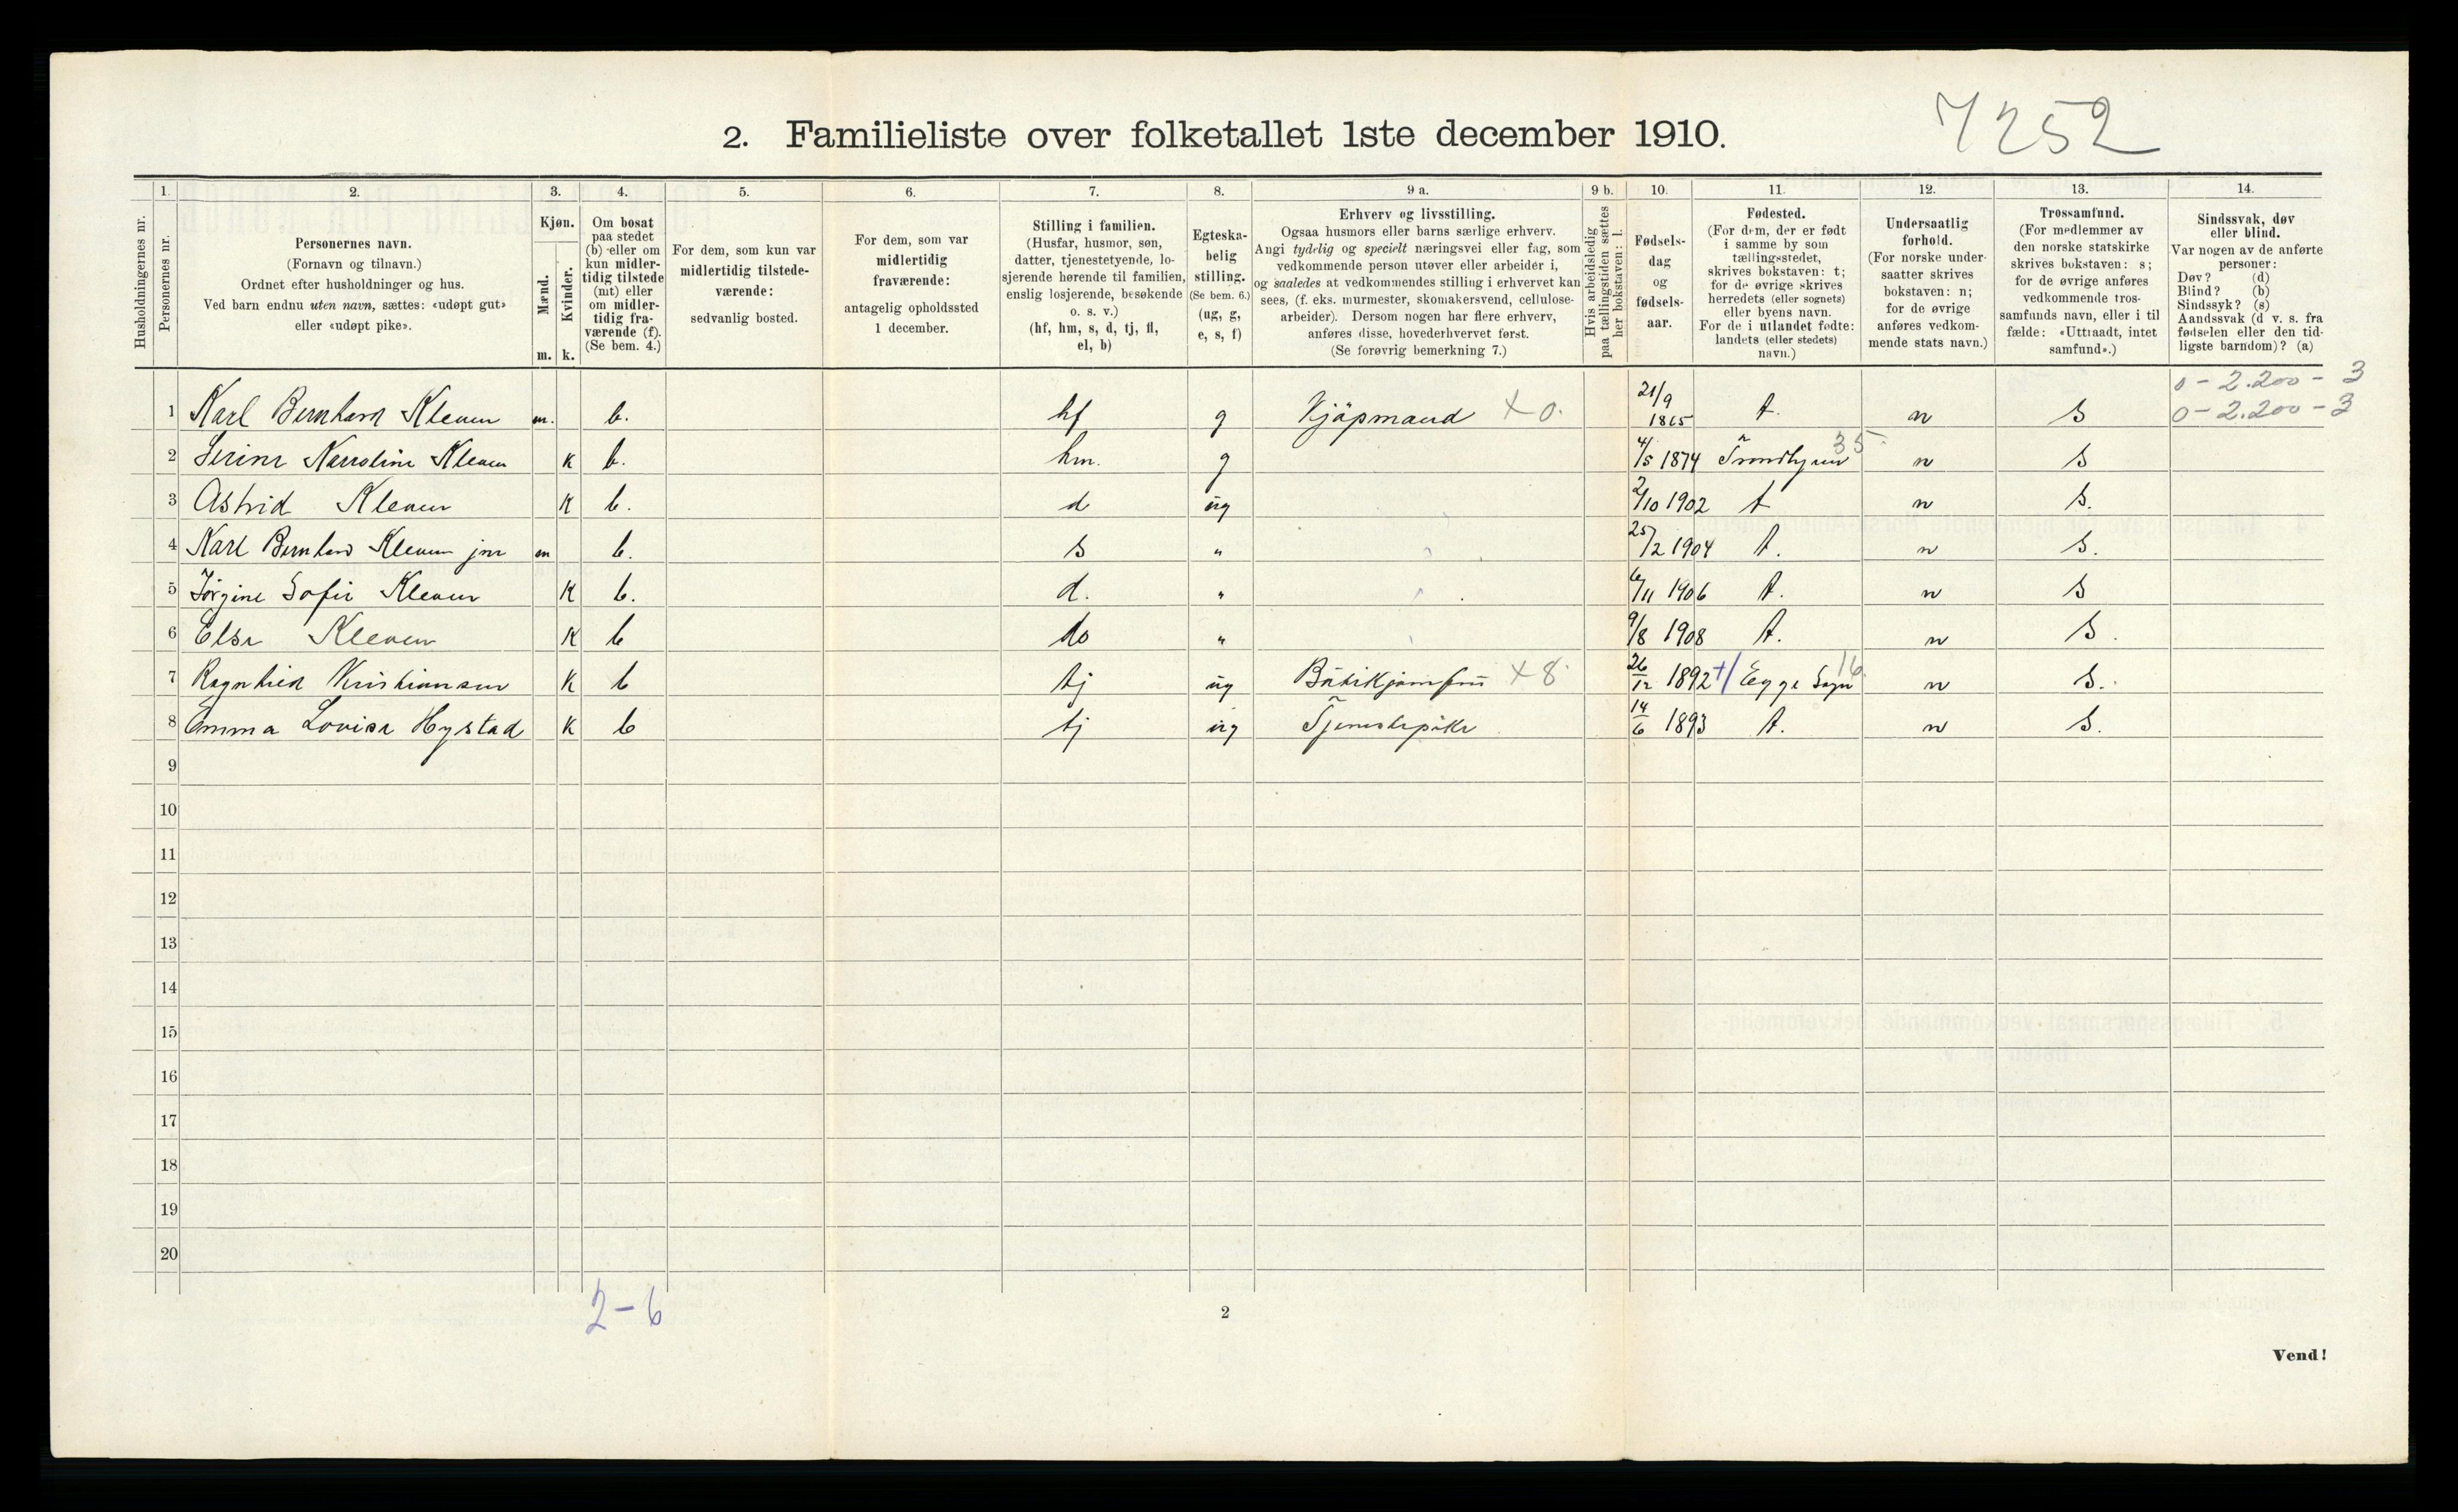 7252
2. Familieliste over folketallet 1ste december 1910.
Husholdningernes nr.
1.
Personernes nr.
2.
Personernes navn.
(Fornavn og tilnavn.)
Ordnet efter husholdninger og hus.
Ved barn endnu uten navn, sættes: «udøpt gut»
eller «udøpt pike».
3.
Kjøn.
Mænd.
Kvinder.
m. k.
4.
Om bosat
paa stedet
(b) eller om
kun midler-
tidig tilstede
(mt) eller
om midler-
tidig fra-
værende (f).
(Se bem. 4.)
5.
For dem, som kun var
midlertidig tilstede-
værende:
sedvanlig bosted.
6.
For dem, som var
midlertidig
fraværende:
antagelig opholdssted
1 december.
7.
Stilling i familien.
(Husfar, husmor, søn,
datter, tjenestetyende, lo-
sjerende hørende til familien,
enslig losjerende, besøkende
o. s. v.)
(hf, hm, s, d, tj, fl,
el, b)
8.
Egteska-
belig
stilling.
(Se bem. 6.)
(ug, g,
e, s, f)
9 a.
Erhverv og livsstilling.
Ogsaa husmors eller barns særlige erhverv.
Angi tydelig og specielt næringsvei eller fag, som
vedkommende person utøver eller arbeider i,
og saaledes at vedkommendes stilling i erhvervet kan
sees, (f. eks. murmester, skomakersvend, cellulose-
arbeider). Dersom nogen har flere erhverv,
anføres disse, hovederhvervet først.
(Se forøvrig bemerkning 7.)
9 b.
Hvis arbeidsledig
paa tællingstiden sættes
her bokstaven: l.
10.
Fødsels-
dag
og
fødsels-
aar.
11.
Fødested.
(For dem, der er født
i samme by som
tællingsstedet,
skrives bokstaven: t;
for de øvrige skrives
herredets (eller sognets)
eller byens navn.
For de i utlandet fødte:
landets (eller stedets)
navn.)
12.
Undersaatlig
forhold.
(For norske under-
saatter skrives
bokstaven: n;
for de øvrige
anføres vedkom-
mende stats navn.)
13.
Trossamfund.
(For medlemmer av
den norske statskirke
skrives bokstaven: s;
for de øvrige anføres
vedkommende tros-
samfunds navn, eller i til
fælde: «Uttraadt, intet
samfund».)
14.
Sindssvak, døv
eller blind.
Var nogen av de anførte
personer:
Døv? (d)
Blind? (b)
Sindssyk? (s)
Aandssvak (d v. s. fra
fødselen eller den tid-
ligste barndom)? (a)
0 - 2.200 - 3
1 Karl Bernhard Kleven m. b. hf g Kjöpmand + 0. 21/9 1865 t. n s 0 - 2.200 - 3
2 Serine Karroline Kleven k b. hm. g 4/5 1874 Trondhjem 35 n s
3 Astrid Kleven k b. d ug 2/10 1902 t n s.
4 Karl Bernhard Kleven jnr m b. s " 25/2 1904 t. n s.
5 Jörgine Sofie Kleven k b. d. " 6/11 1906 t. n s
6 Else Kleven k b do " 9/8 1908 t. n s.
7 Ragnhild Kristiansen k b tj ug Butikjomfru + 8. 26/12 1892 +/ Egge Sogn 16. n s.
8 Emma Lovise Hystad k b tj ug Tjenestepike 14/6 1893 t. n s.
9
10
11
12
13
14
15
16
17
18
19
20
2-6
2
Vend!